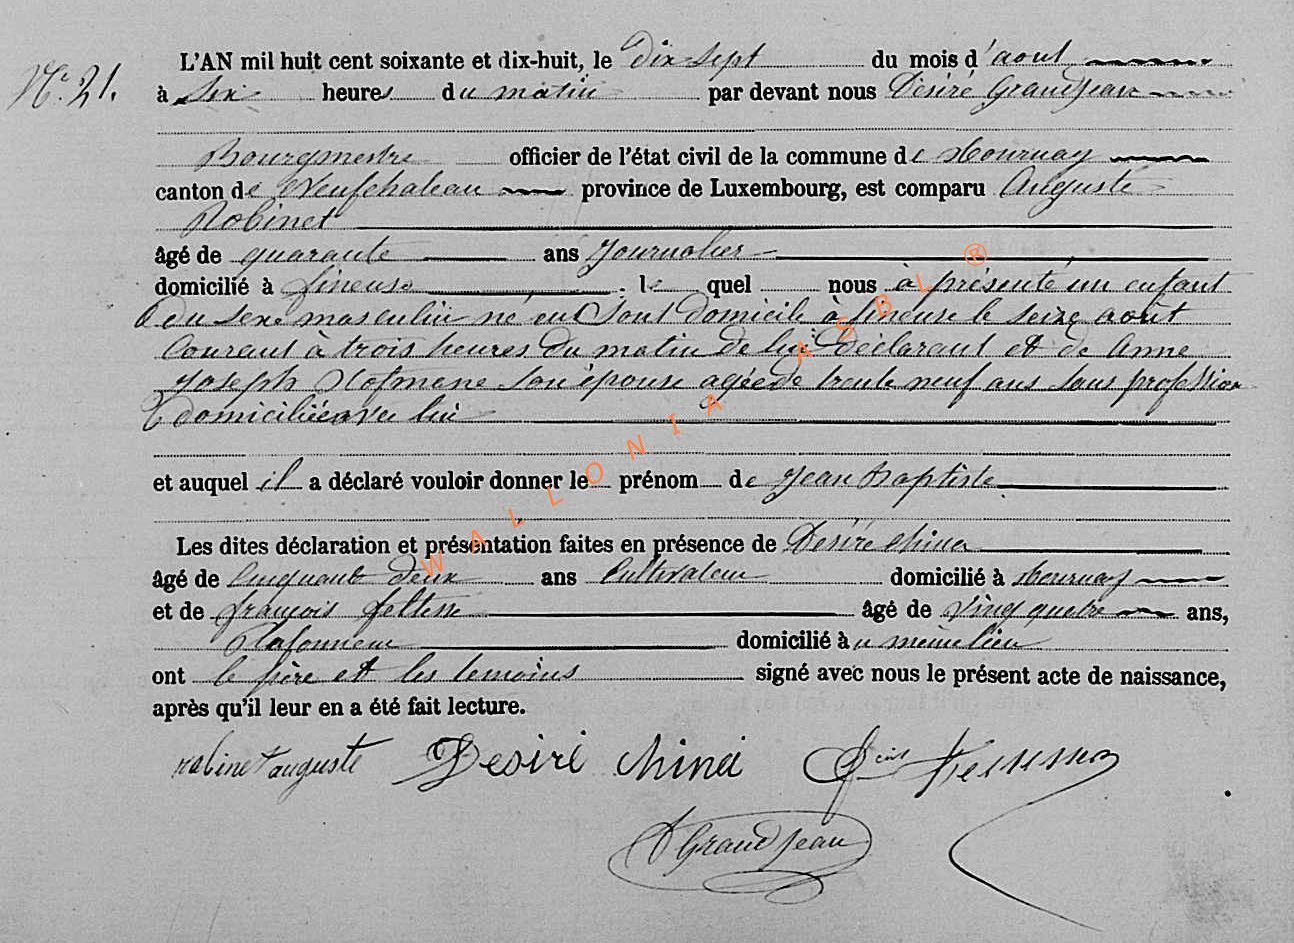 N° 21.
L'AN mil huit cent soixante et dix-huit, le dix sept du mois d'aout
à six heures du matin par devant nous Désiré Grandjean
Bourgmestre officier de l'état civil de la commune de Tournay
canton de Neufchateau province de Luxembourg, est comparu Auguste
Robinet
âgé de quarante ans Journalier
domicilié à fineuse le quel nous à présenté un enfant
du sexe masculin né en Sont domicile à fineuse le seize août
Courant à trois heures du matin de lui déclarant et de Anne
Joseph son épouse agée de trente neuf ans sans profession
domiciliée avec lui
et auquel il a déclaré vouloir donner le prénom de Jean Baptiste
Les dites déclaration et présentation faites en présence de Désiré
âgé de Cinquante deux ans Cultivateur domicilié à Tournay
et de françois âgé de Vingt quatre ans,
Plafonneur domicilié au même lieu
ont le père et les temoins signé avec nous le présent acte de naissance,
après qu'il leur en a été fait lecture.
robinet auguste Desiré
D Grandjean
WALLONIA ASBL ®